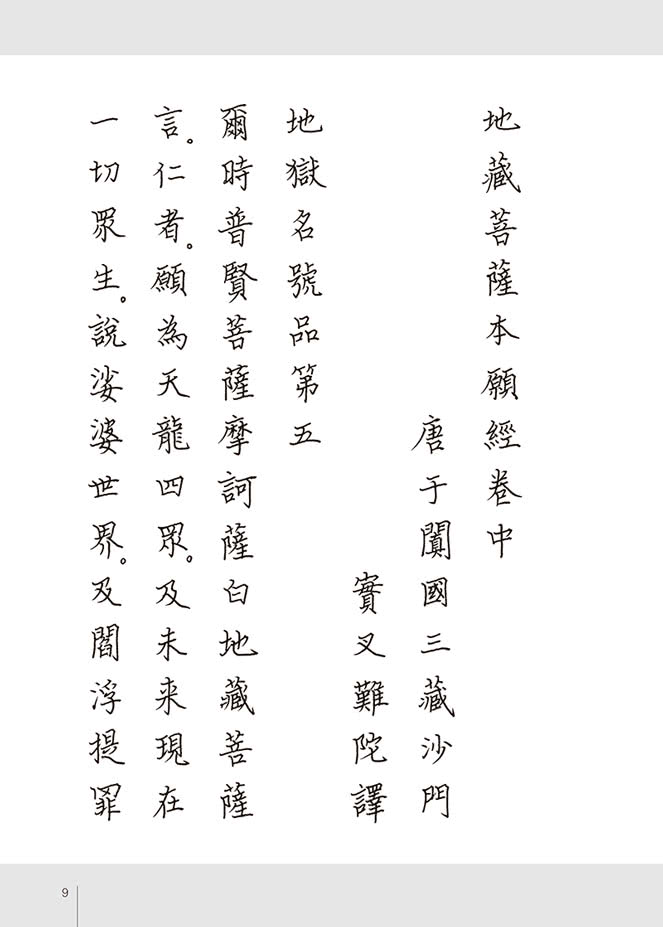 地藏菩薩本願經卷中
唐于闐國三藏沙門
實叉難陀譯
地獄名號品第五
爾時普賢菩薩摩訶薩白地藏菩薩
言。仁者。願為天龍四眾。及未來現在
一切眾生。說娑婆世界。及閻浮提罪
9